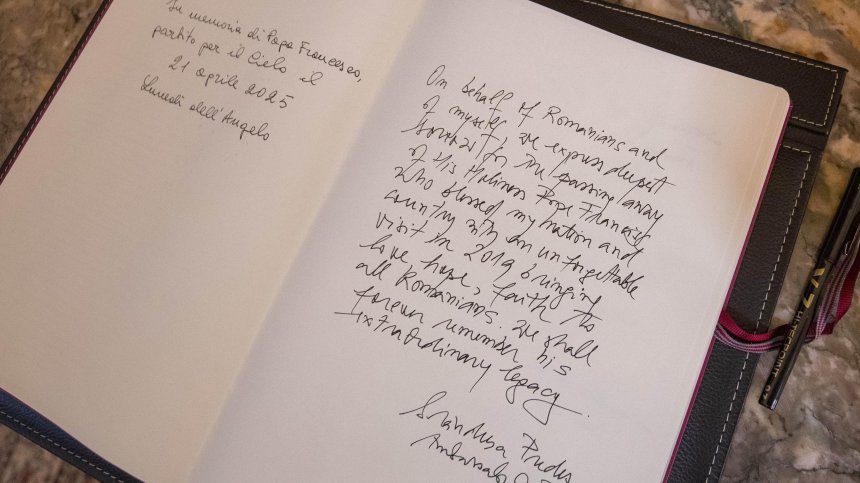 In memoria di Papa Francesco,
partito per il Cielo il
21 aprile 2025
Lunedì dell'Angelo
On behalf of Romanians and
of myself, we express deepest
for the passing away
of His Holiness Pope Francis,
who blessed my nation and
country with an unforgettable
visit in 2019 bringing
love, hope, faith to
all Romanians. We shall
forever remember his
extraordinary legacy.
Ambassador